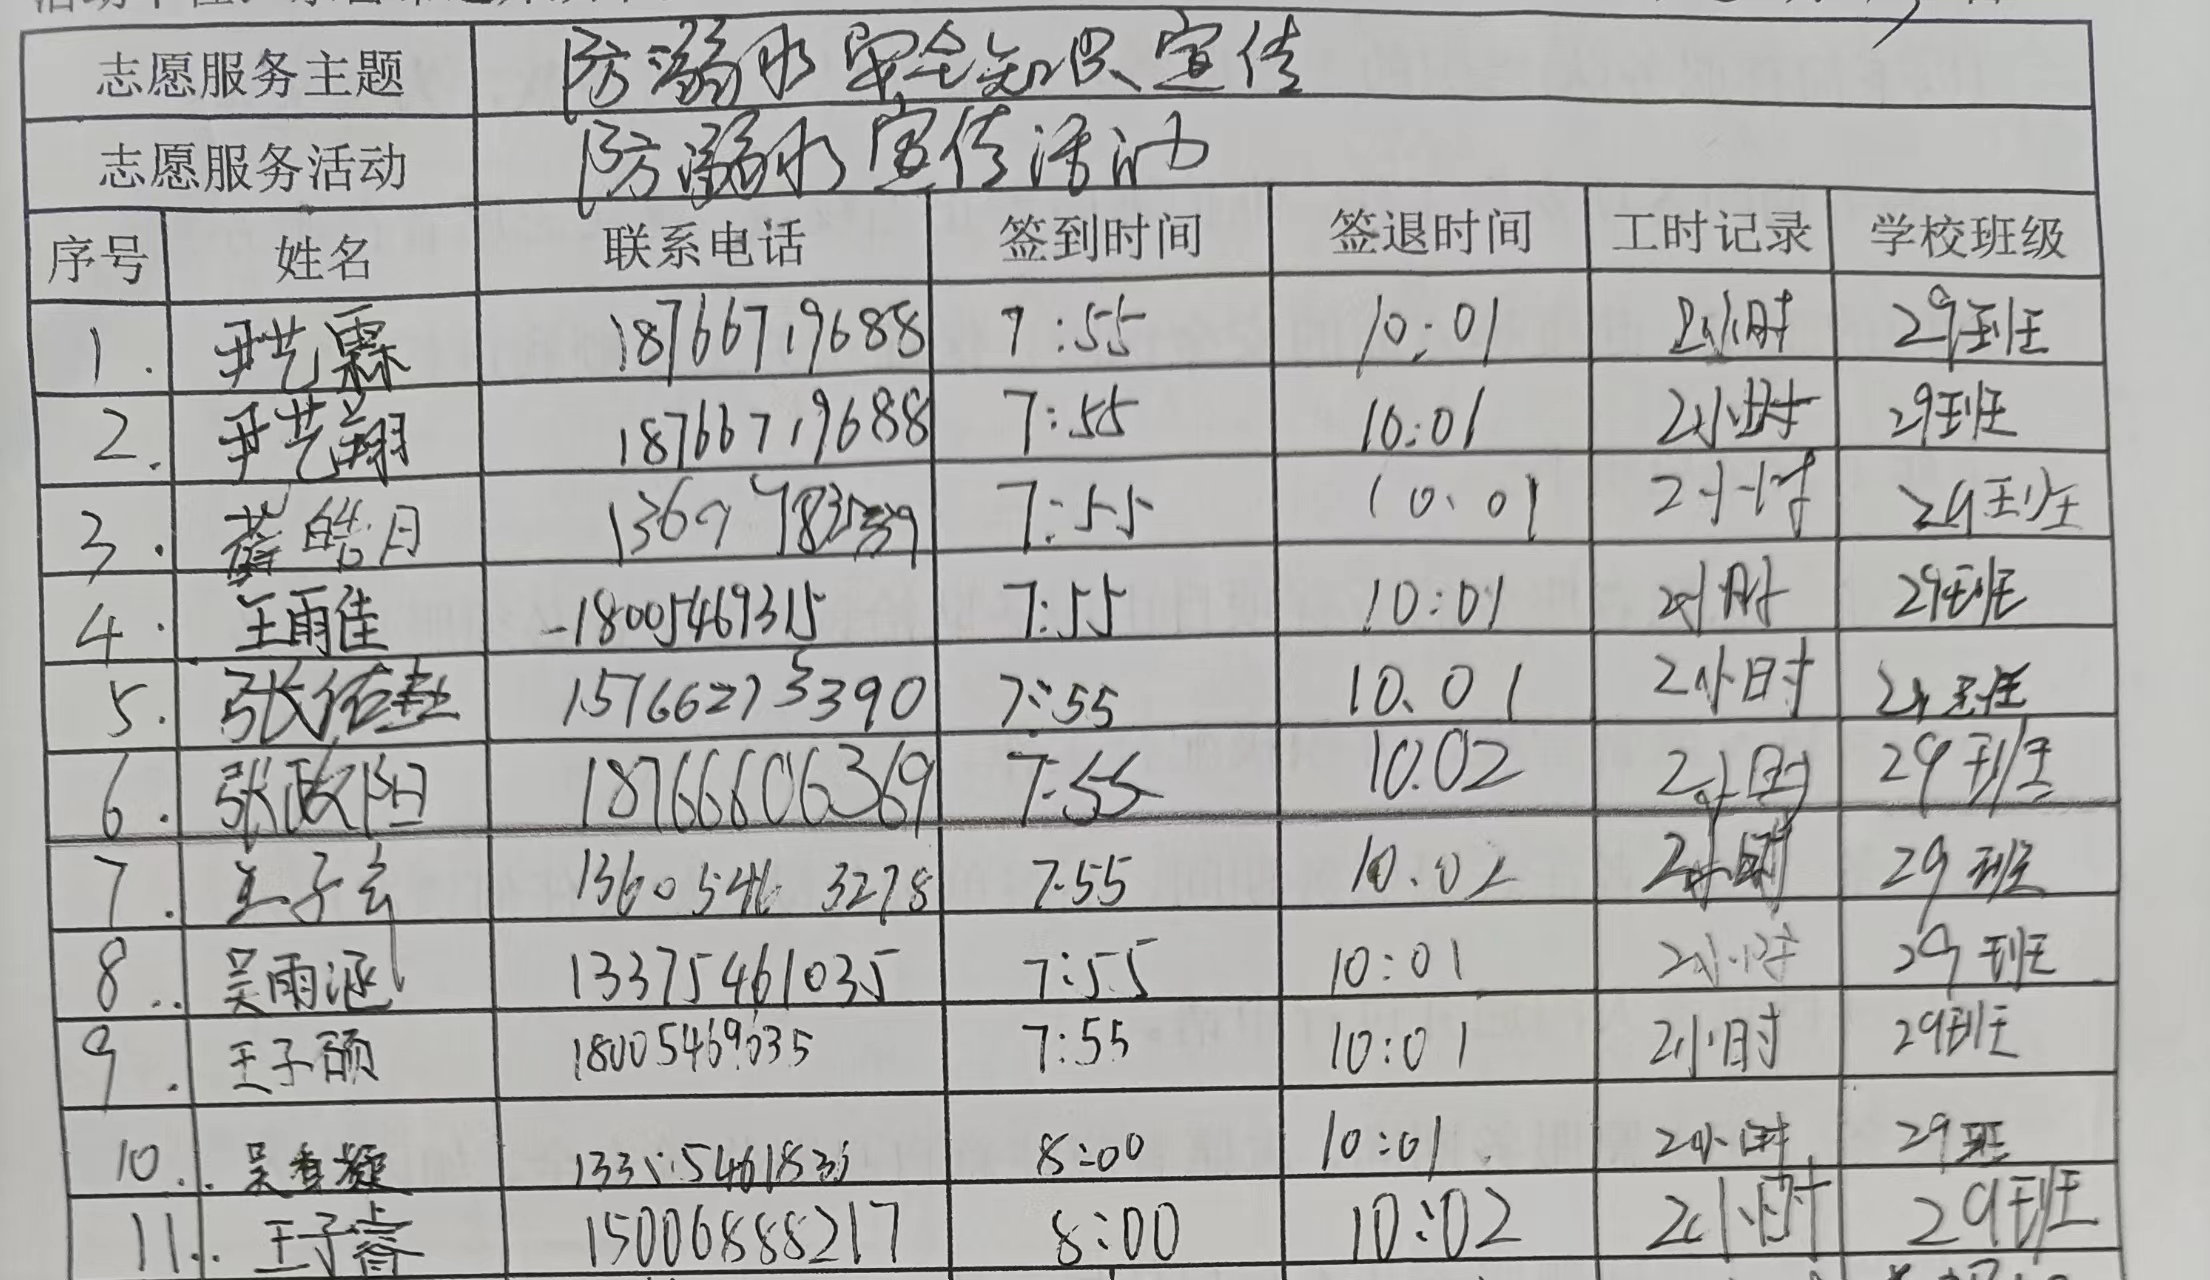 志愿服务主题 防溺水安全知识宣传
志愿服务活动 防溺水宣传活动
序号 姓名 联系电话 签到时间 签退时间 工时记录 学校班级
1. 尹艺霖 18766719688 7:55 10:01 2小时 29班
2. 尹艺翔 18766719688 7:55 10:01 2小时 29班
3. 皓月 7:55 10:01 2小时 29班
4. 王雨佳 18005469315 7:55 10:01 2小时 29班
5. 张佑 15766273390 7:55 10.01 2小时 29班
6. 张政阳 18766606369 7:55 10.02 2小时 29班
7. 王子玄 13605463278 7:55 10.02 2小时 29班
8.. 吴雨涵 13375461035 7:55 10:01 2小时 29班
9. 王子硕 18005469035 7:55 10:01 2小时 29班
10.. 吴 8:00 10:01 2小时 29班
11.. 王子睿 15006888217 8:00 10:02 2小时 29班